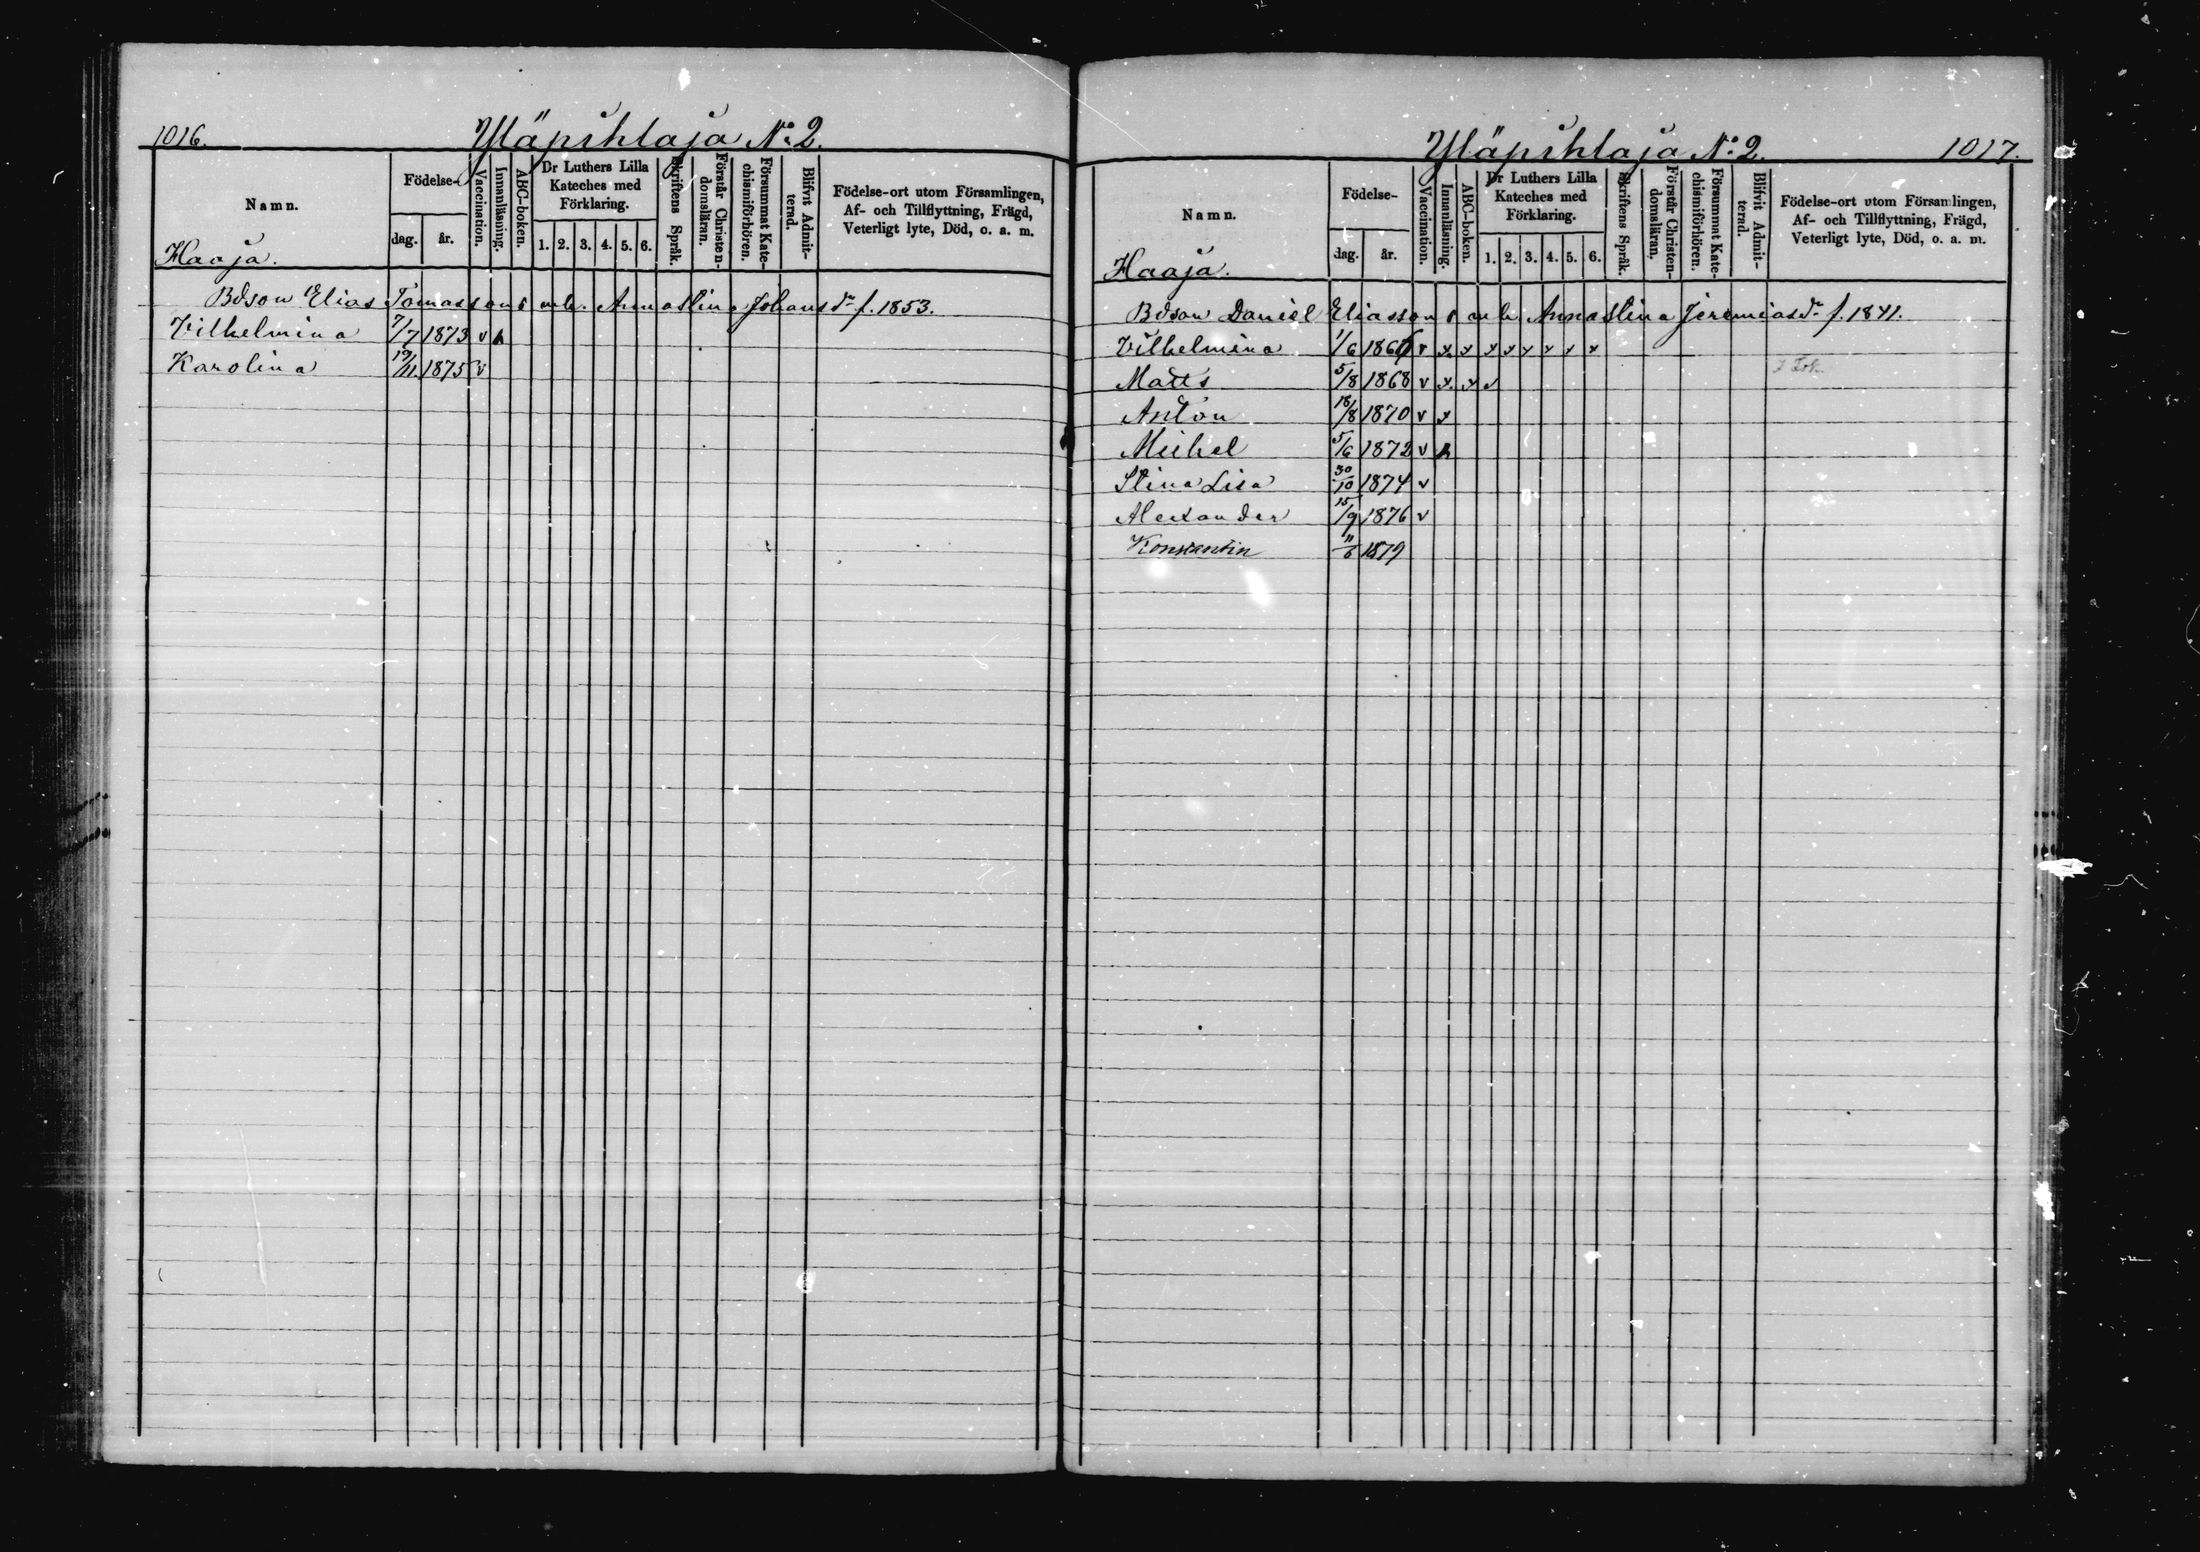 1016.
Yläpihlaja N:o 2.
Namn.
Födelse-
dag.
år.
Vaccination.
Innanläsning.
ABC-boken.
Dr Luthers Lilla
Kateches med
Förklaring.
1. 2. 3. 4. 5. 6.
Skriftens Språk.
Förstår Christen-
domsläran.
Försummat Kate-
chismiförhören.
Blifvit Admit-
terad.
Födelse-ort utom Församlingen,
Af- och Tillflyttning, Frägd,
Veterligt lyte, Död, o. a. m.
Haaja.
Bdson Elias Tomassons enk. Anna Stina Johansdr f. 1853.
Vilhelmina 7/7 1873 v
Karolina 19/11 1875 v
Yläpihlaja N:o 2.
1017.
Namn.
Födelse-
dag.
år.
Vaccination.
Innanläsning.
ABC-boken.
Dr Luthers Lilla
Kateches med
Förklaring.
1. 2. 3. 4. 5. 6.
Skriftens Språk.
Förstår Christen-
domsläran.
Försummat Kate-
chismiförhören.
Blifvit Admit-
terad.
Födelse-ort utom Församlingen,
Af- och Tillflyttning, Frägd,
Veterligt lyte, Död, o. a. m.
Haaja.
Bdson Daniel Eliassons enk. Anna Stina Jeremiasdr f. 1841.
Vilhelmina 1/6 1866 v x x x x x x x x
Matts 5/8 1868 v x x v
Anton 18/8 1870 v x
Michel 5/6 1872 v
Stina Lisa 30/10 1874 v
Alexander 15/9 1876 v
Konstantin 11/6 1879